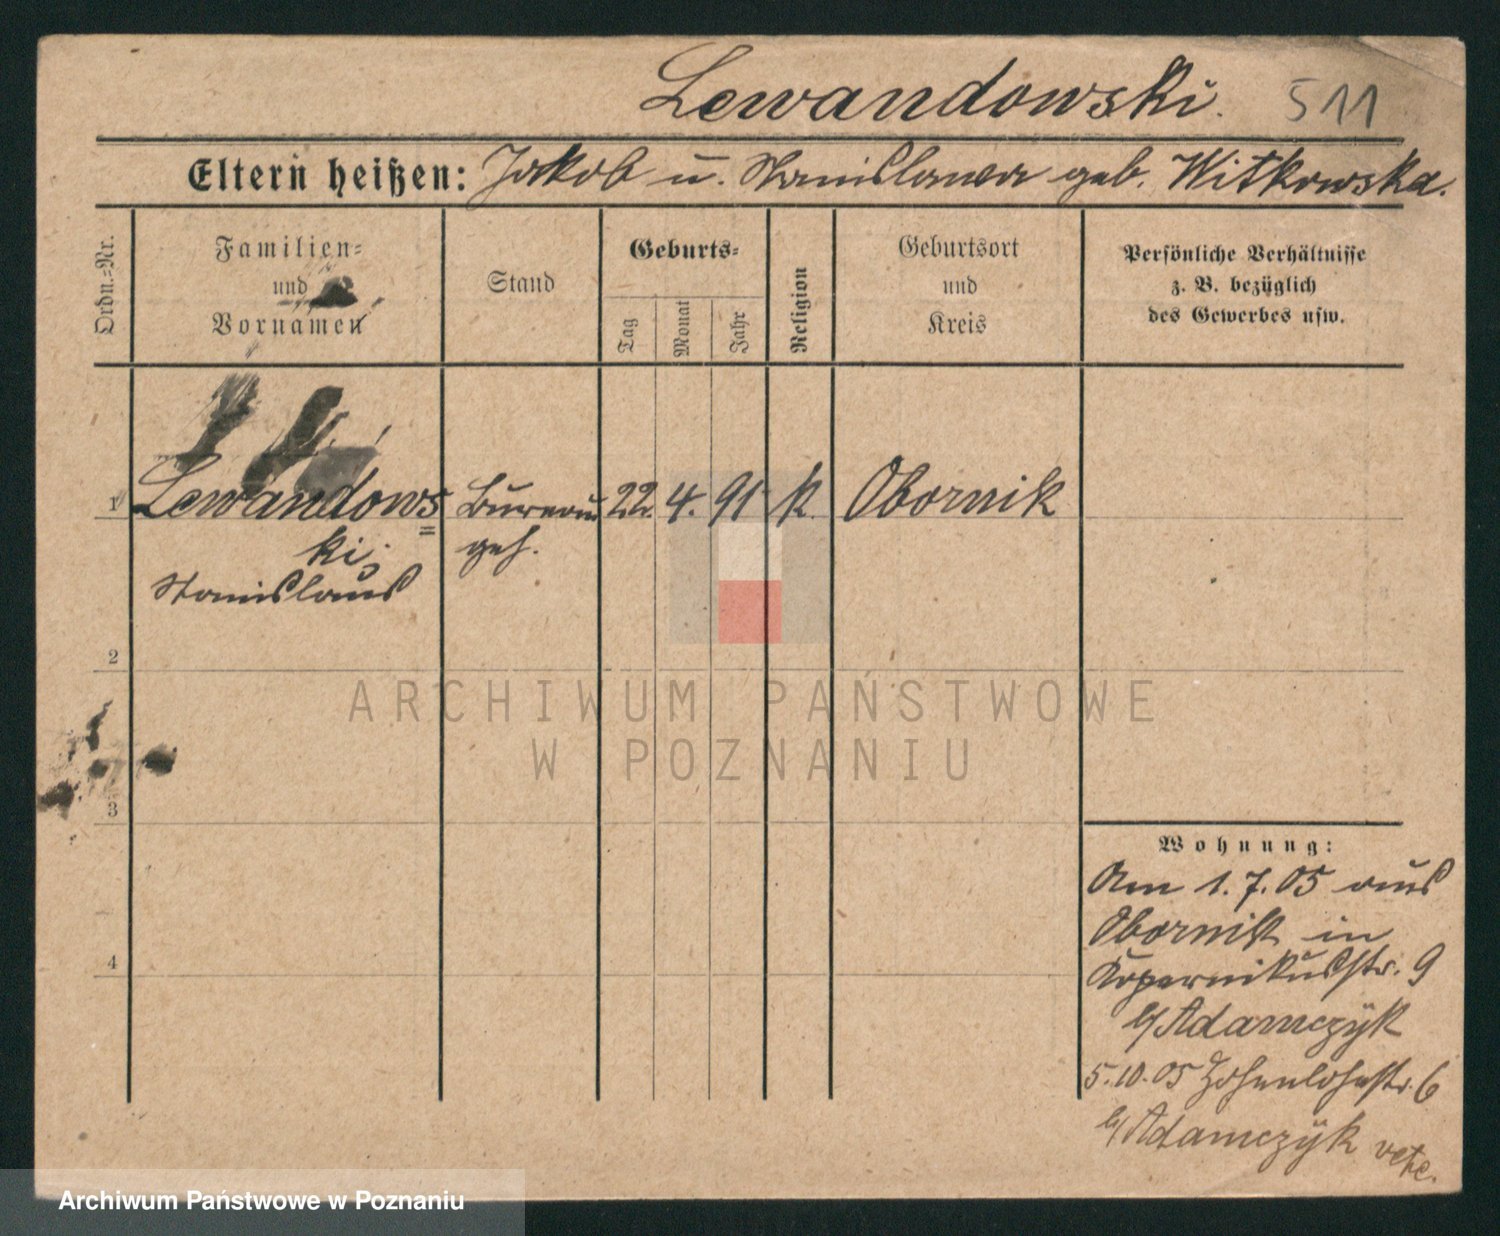 Lewandowski. 511
Eltern heißen: Jakob u. Stanislawa geb. Witkowska.
Ordn.=Nr.
Familien=
und
Vornamen
Stand
Geburts=
Tag
Monat
Jahr
Religion
Geburtsort
und
Kreis
Persönliche Verhältnisse
z. B. bezüglich
des Gewerbes usw.
1 Lewandows Bureau 22. 4. 91 k. Obornik
ki, geh.
Stanislaus
2
3
4
Wohnung:
Am 1.7.05 aus
Obornik in
Kopernikusstr. 9
b/Adamczÿk
5.10.05 Hohenlohestr. 6
b/Adamczÿk
ARCHIWUM PAŃSTWOWE
W POZNANIU
Archiwum Państwowe w Poznaniu